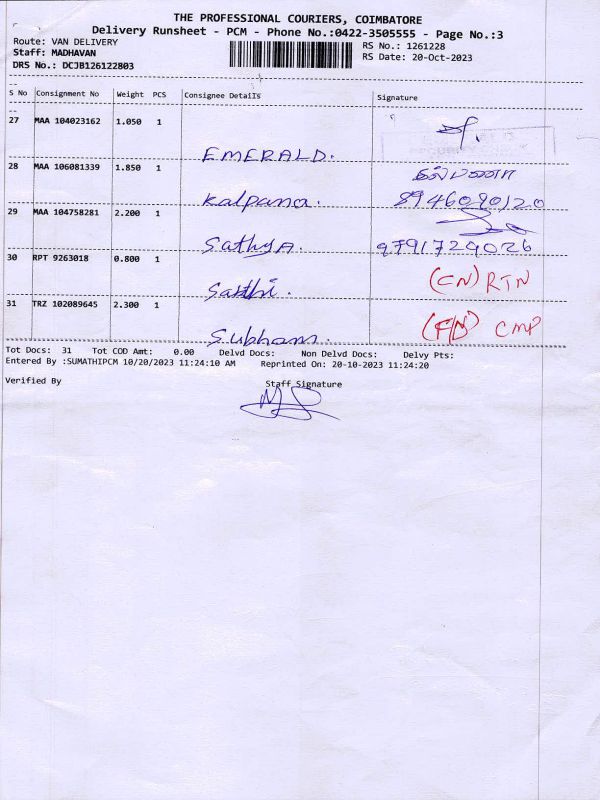 THE PROFESSIONAL COURIERS, COIMBATORE
Delivery Runsheet - PCM - Phone No.:0422-3505555 - Page No.:3
Route: VAN DELIVERY RS No.: 1261228
Staff: MADHAVAN RS Date: 20-Oct-2023
DRS No.: DCJB126122803
S No Consignment No Weight PCS Consignee Details Signature
27 MAA 104023162 1.050 1
EMERALD.
28 MAA 106081339 1.850 1
Kalpana. 8946090120
29 MAA 104758281 2.200 1
Sathya. 9791729026
30 RPT 9263018 0.800 1 (CN) RTN
Sakthi.
31 TRZ 102089645 2.300 1 CMP
Subham.
Tot Docs: 31 Tot COD Amt: 0.00 Delvd Docs: Non Delvd Docs: Delvy Pts:
Entered By :SUMATHIPCM 10/20/2023 11:24:10 AM Reprinted On: 20-10-2023 11:24:20
Verified By Staff Signature